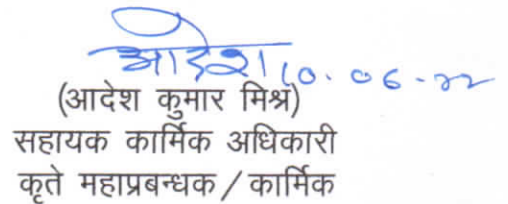 आदेश 10.06-22
(आदेश कुमार मिश्र)
सहायक कार्मिक अधिकारी
कृते महाप्रबन्धक / कार्मिक